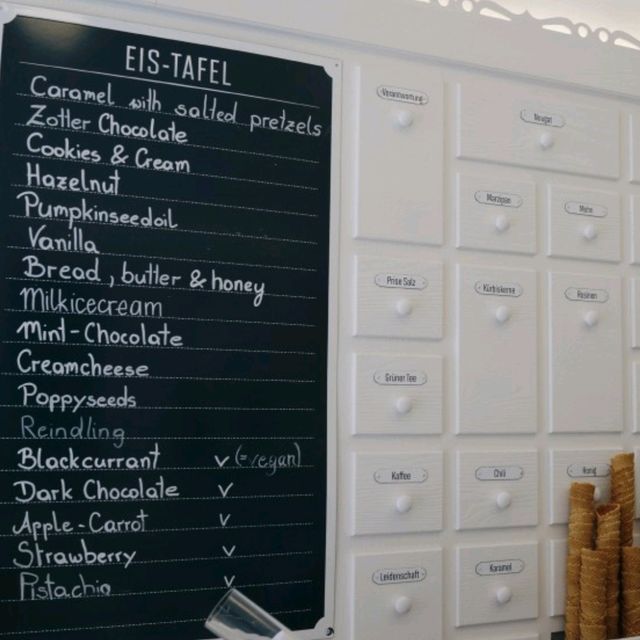 EIS-TAFEL
Caramel with salted pretzels
Zotter Chocolate
Cookies & Cream
Hazelnut
Pumpkinseedoil
Vanilla
Bread, butter & honey
Milkicecream
Mint-Chocolate
Creamcheese
Poppyseeds
Reindling
Blackcurrant v (=vegan)
Dark Chocolate v
Apple-Carrot v
Strawberry v
Pistachio v
Verantwortung
Nougat
Marzipan
Mohn
Prise Salz
Kürbiskerne
Rosinen
Grüner Tee
Kaffee
Chili
Honig
Leidenschaft
Karamel